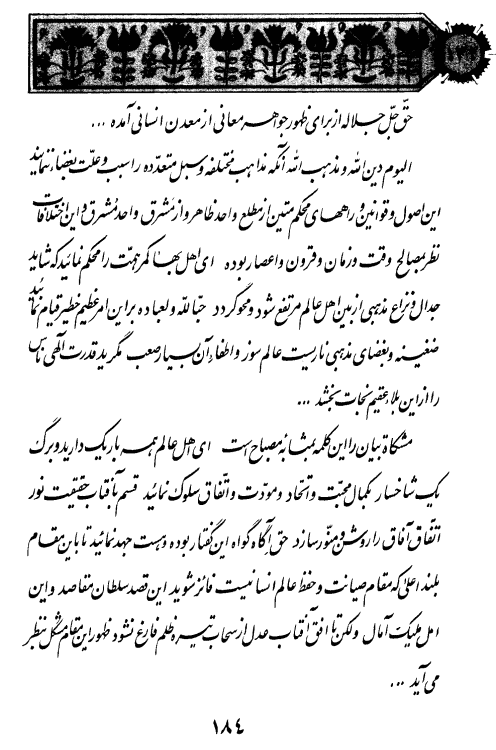 حقّ جلّ جلاله از برای ظهور جواهر معانی از معدن انسانی آمده ...
الیوم دین الله و مذهب الله آنکه مذاهب مختلفه و سبل متعدّده را سبب و علّت بغضاء ننمایند
این اصول و قوانین و راههای محکم متین از مطلع واحد ظاهر و از مشرق واحد مشرق و این اختلافات
نظر بمصالح وقت و زمان و قرون و اعصار بوده ای اهل بهاء کمر همّت را محکم نمائید که شاید
جدال و نزاع مذهبی از بین اهل عالم مرتفع شود و محو گردد حبّاً لله و لعباده بر این امر عظیم خطیر قیام نمائید
ضغینه و بغضای مذهبی ناریست عالم سوز و اطفاء آن بسیار صعب مگر ید قدرت الٓهی ناس
را از این بلاء عقیم نجات بخشد ...
مشکاة بیان را این کلمه بمثابهٔ مصباح است ای اهل عالم همه بار یک دارید و برگ
یک شاخسار بکمال محبّت و اتّحاد و مودّت و اتّفاق سلوک نمائید قسم بآفتاب حقیقت نور
اتّفاق آفاق را روشن و منوّر سازد حقّ آگاه گواه این گفتار بوده و هست جهد نمائید تا باین مقام
بلند اعلی که مقام صیانت و حفظ عالم انسانیست فائز شوید این قصد سلطان مقاصد و این
امل ملیک آمال ولکن تا افق آفتاب عدل از سحاب تیرهٔ ظلم فارغ نشود ظهور این مقام مشکل بنظر
می‌آید ...
۱۸۴